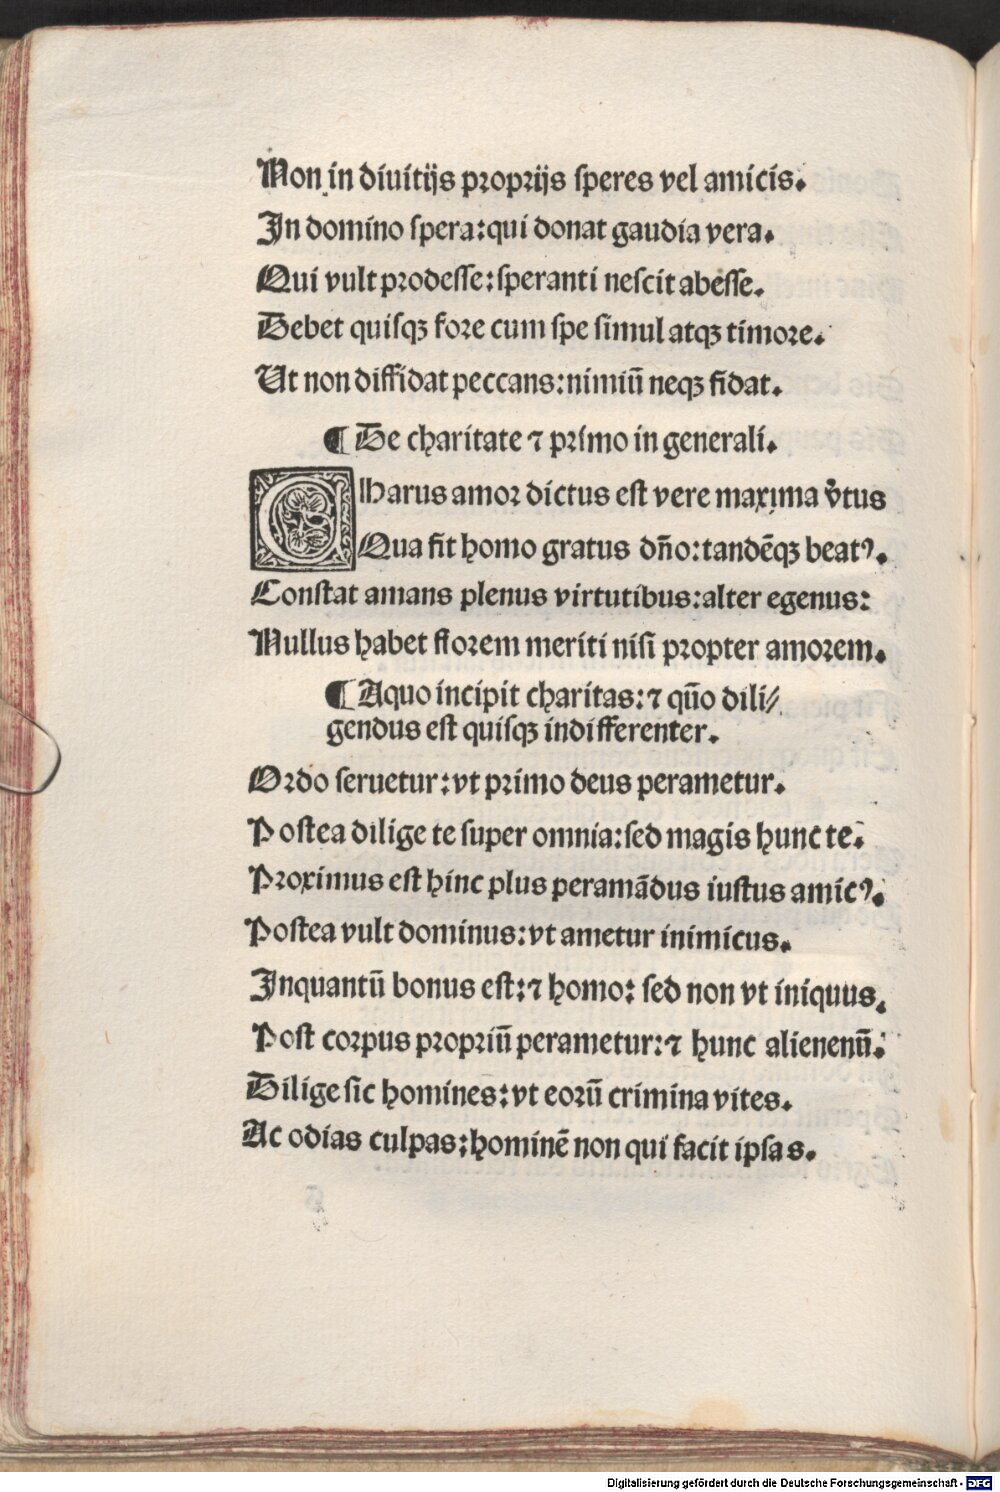 Non in diuitijs proprijs speres vel amicis.
In domino spera:qui donat gaudia vera.
Qui vult prodesse:speranti nescit abesse.
Debet quisqꝫ fore cum spe simul atqꝫ timore.
Ut non diffidat peccans:nimiū neqꝫ fidat.
¶ De charitate ⁊ primo in generali.
Charus amor dictus est vere maxima v̄tus
Qua fit homo gratus dn̄o:tandēqꝫ beatꝰ.
Constat amans plenus virtutibus:alter egenus:
Nullus habet florem meriti nisi propter amorem.
¶ Aquo incipit charitas:⁊ quō dili⸗
gendus est quisqꝫ indifferenter.
Ordo seruetur:vt primo deus perametur.
Postea dilige te super omnia:sed magis hunc te.
Proximus est hinc plus peramādus iustus amicꝰ.
Postea vult dominus:vt ametur inimicus.
Inquantū bonus est:⁊ homo: sed non vt iniquus.
Post corpus propriū perametur:⁊ hunc alienenū.
Dilige sic homines:vt eorū crimina vites.
Ac odias culpas:hominē non qui facit ipsas.
Digitalisierung gefördert durch die Deutsche Forschungsgemeinschaft - DFG